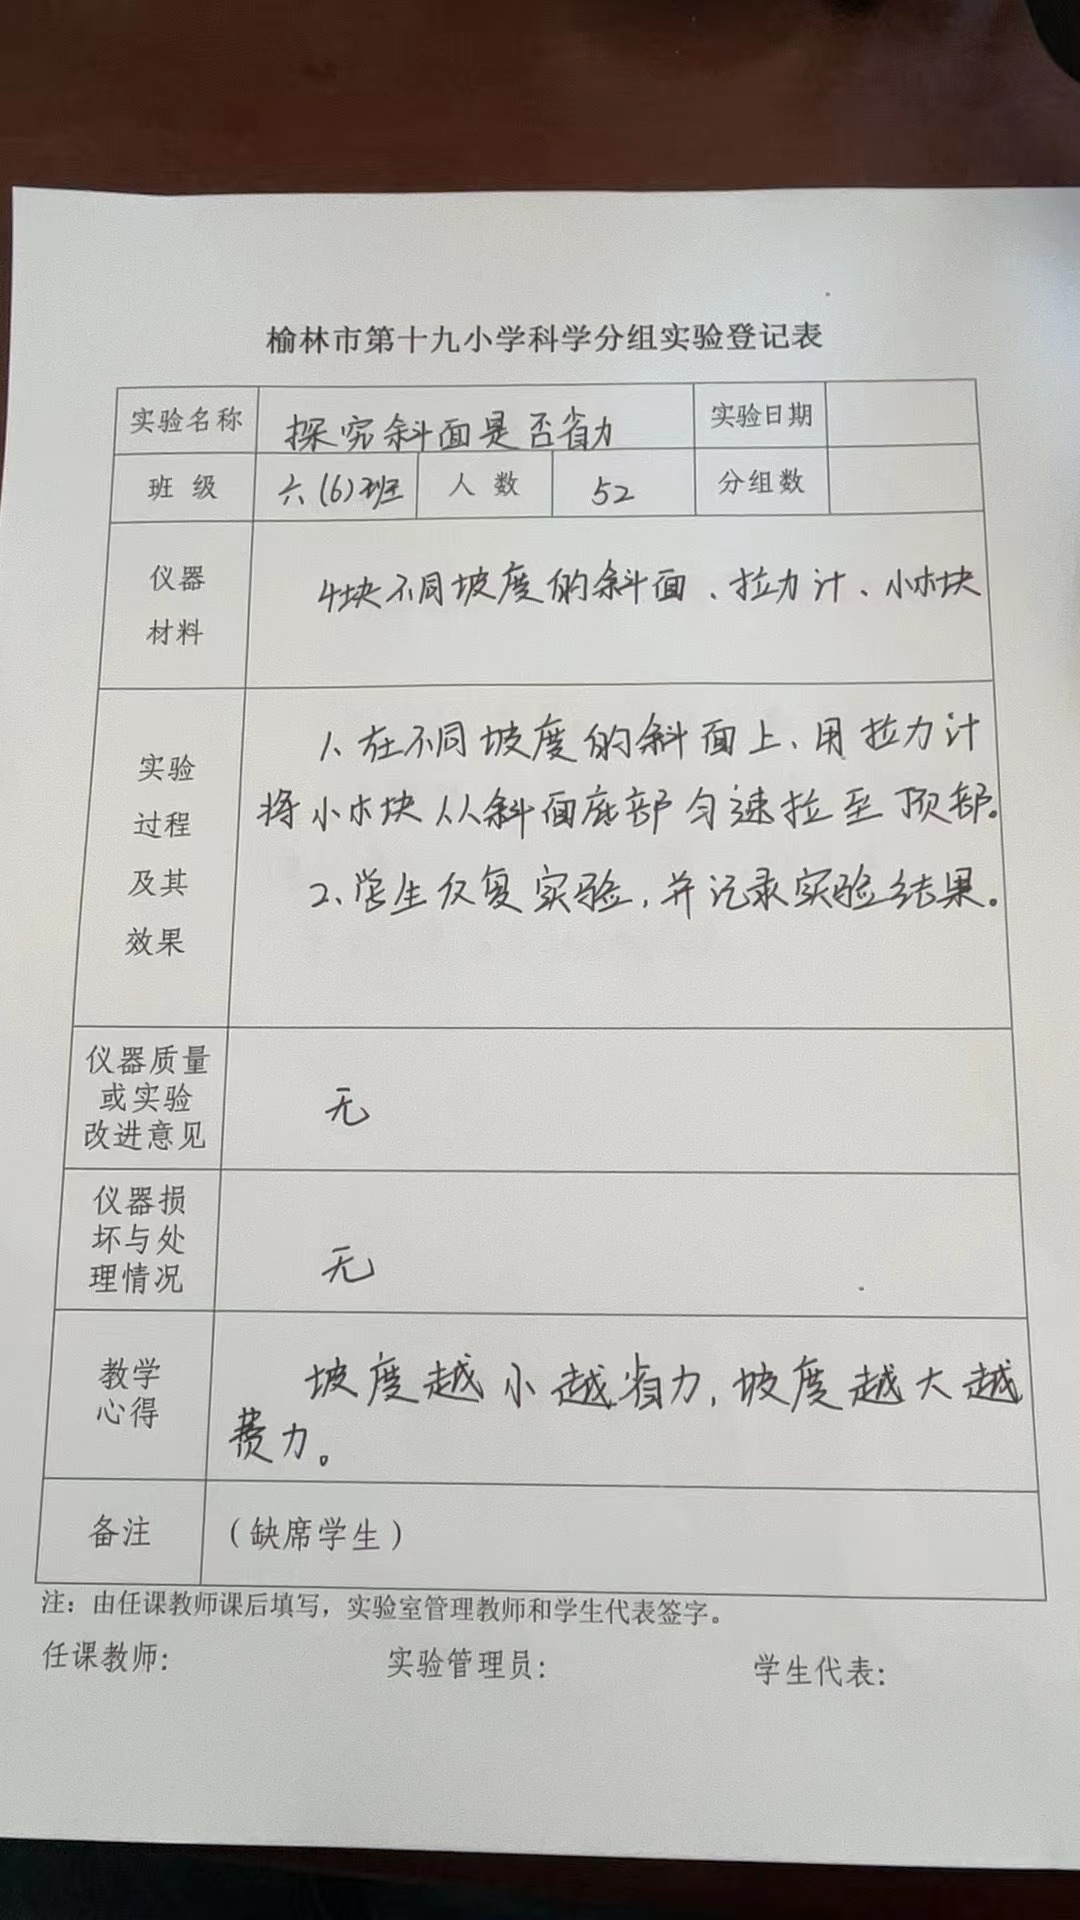 榆林市第十九小学科学分组实验登记表
实验名称 探究斜面是否省力 实验日期
班 级 六(6)班 人 数 52 分组数
仪器
材料
4块不同坡度的斜面、拉力计、小木块
实验
过程
及其
效果
1、在不同坡度的斜面上、用拉力计
将小木块从斜面底部匀速拉至顶部。
2、学生反复实验,并记录实验结果。
仪器质量
或实验
改进意见
无
仪器损
坏与处
理情况
无
教学
心得
坡度越小越省力,坡度越大越
费力。
备注 (缺席学生)
注：由任课教师课后填写，实验室管理教师和学生代表签字。
任课教师: 实验管理员: 学生代表: